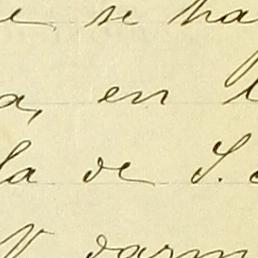 e se ha
a, en l
la de S.
V darm